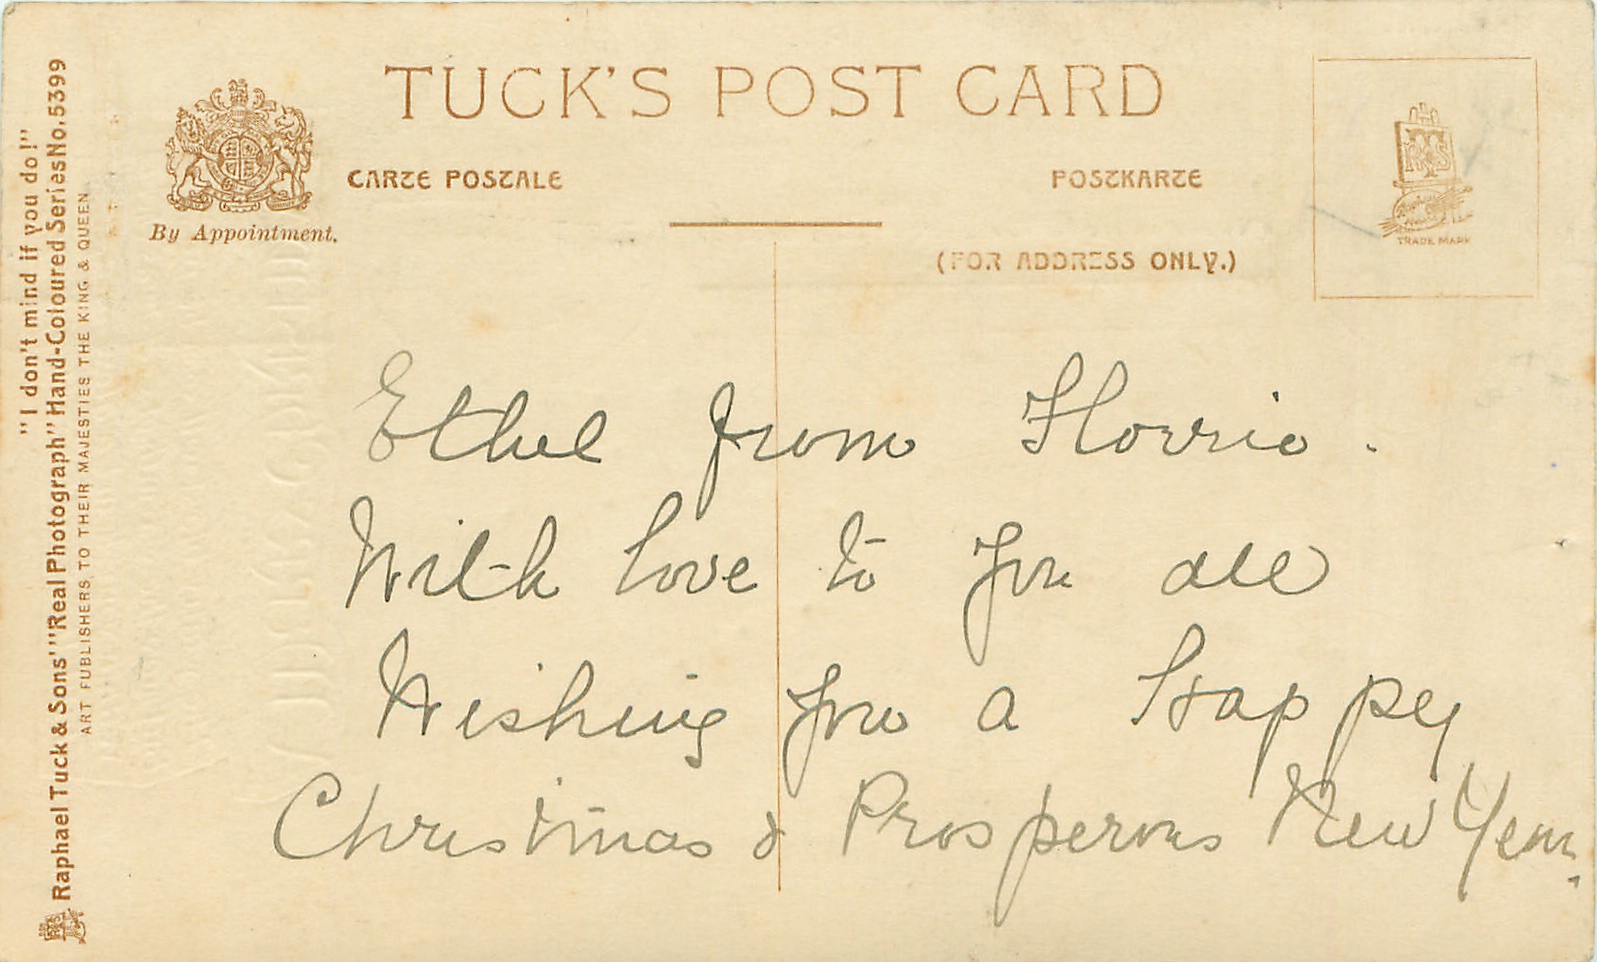 "I don't mind if you do!"
Raphael Tuck & Sons' "Real Photograph" Hand-Coloured Series No. 5399
ART PUBLISHERS TO THEIR MAJESTIES THE KING & QUEEN
TUCK'S POST CARD
CARTE POSTALE
POSTKARTE
By Appointment.
(FOR ADDRESS ONLY.)
TRADE MARK
Ethel from Florrie.
With love to you all
Wishing you a Happy
Christmas & Prosperous New Year.